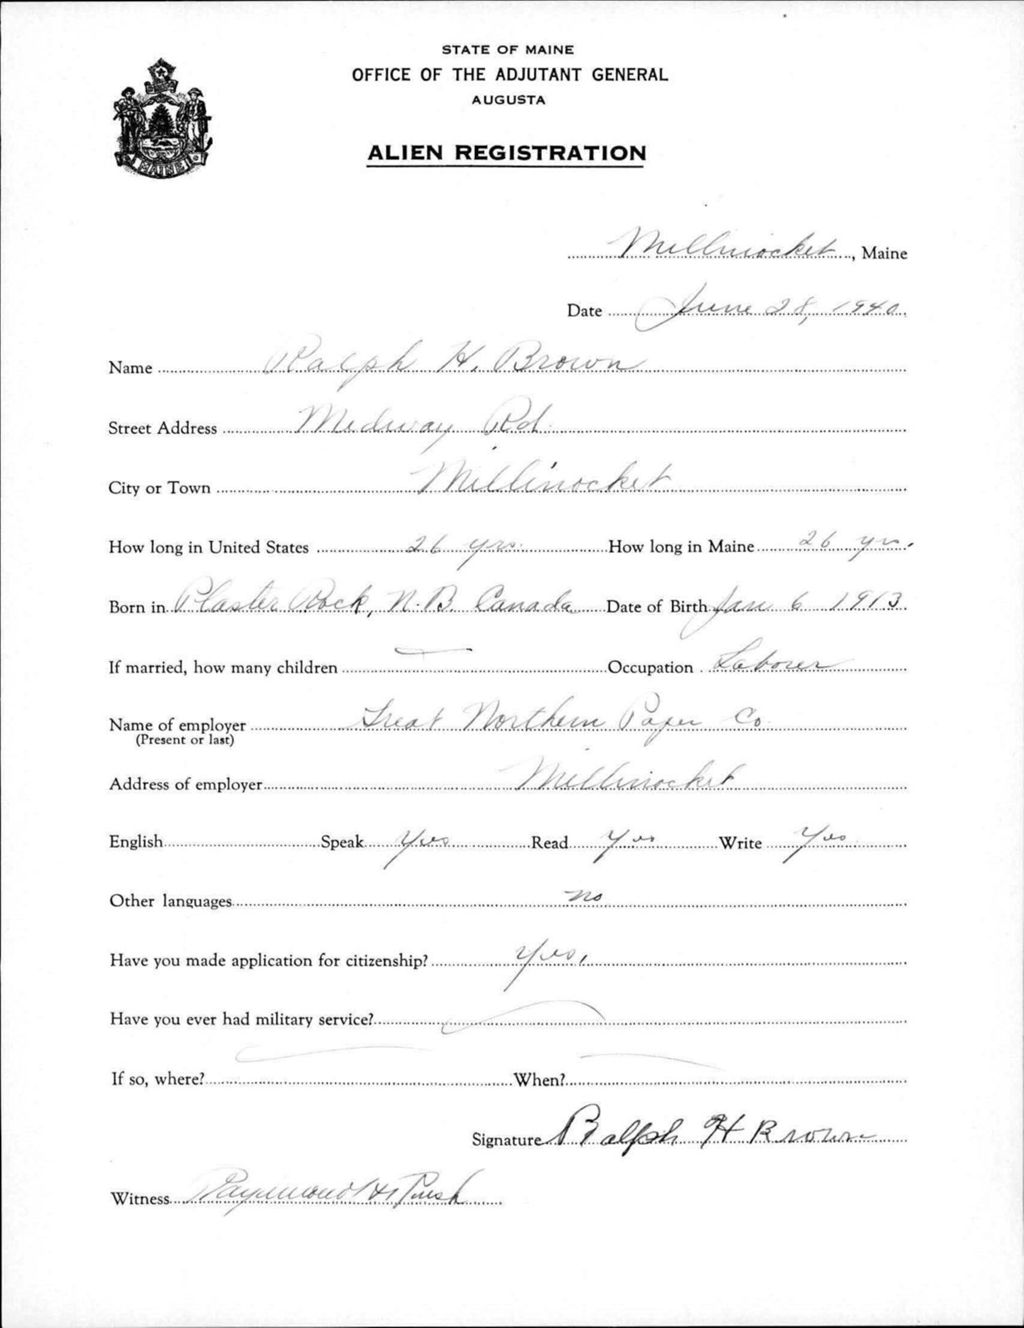 STATE OF MAINE
OFFICE OF THE ADJUTANT GENERAL
AUGUSTA
ALIEN REGISTRATION
MAINE
Millinocket, Maine
Date June 28, 1940
Name Ralph H. Brown
Street Address Medway Rd.
City or Town Millinocket
How long in United States 26 yrs. How long in Maine 26 yrs.
Born in Plaster Rock, N.B. Canada Date of Birth Jan 6 1913
If married, how many children — Occupation Laborer
Name of employer Great Northern Paper Co.
(Present or last)
Address of employer Millinocket
English Speak Yes Read Yes Write Yes
Other languages no
Have you made application for citizenship? Yes.
Have you ever had military service? —
If so, where? — When? —
Signature Ralph H Brown
Witness Raymond H